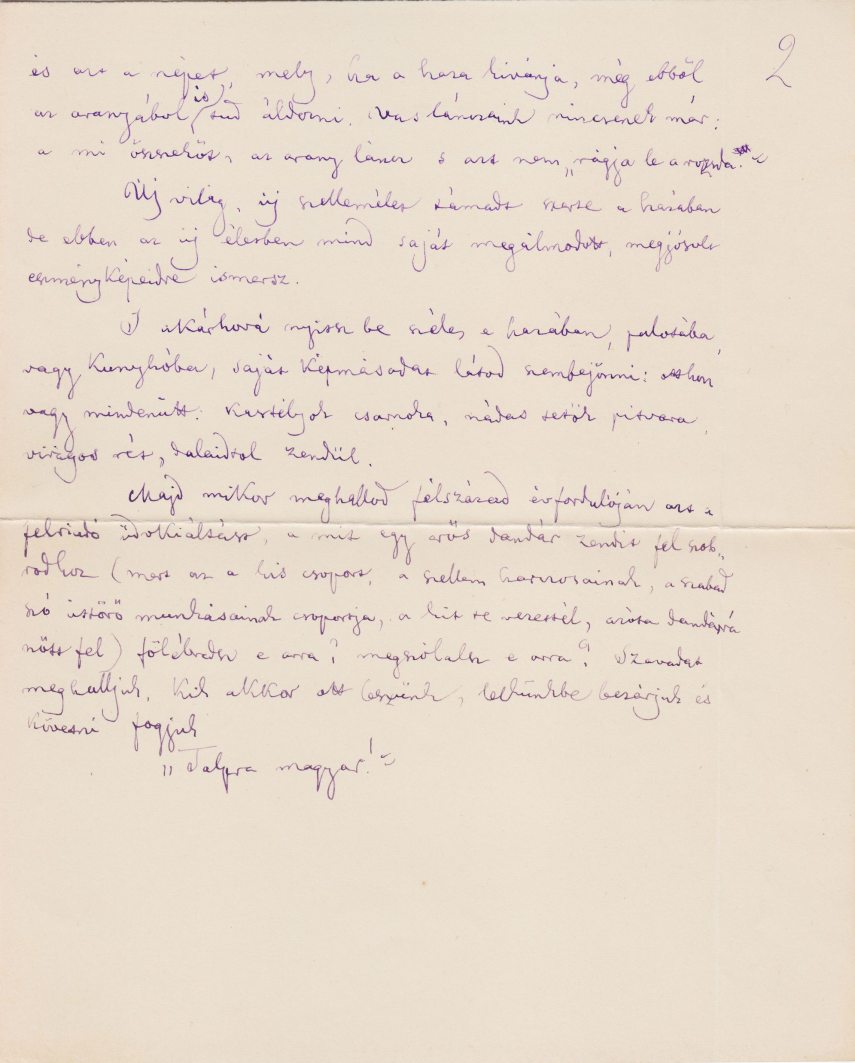 2
és azt a népet, mely, ha a haza kivánja, még ebből
az aranyából is tud áldozni. Vas lánczaink nincsenek már:
a mi összeköt, az arany láncz s azt nem „rágja le a rozsda."
Új világ, új szellemélet támadt szerte a hazában
de ebben az új életben mind saját megálmodott, megjósolt
eszményképeidre ismersz.
S akárhová nyissz be széles e hazában, palotába,
vagy kunyhóba, saját képmásodat látod szembejönni: otthon
vagy mindenütt: kastélyok csarnoka, nádas tetők pitvara,
virágos rét, dalaidtol zendül.
Majd mikor meghallod félszázad évfordulóján azt a
felriadó üdvkiáltást, a mit egy erős dandár zendit fel szob-
rodhoz (mert az a kis csoport, a szellem harczosainak, a szabad
szó úttörő munkásainak csoportja, a kit te vezettél, azóta dandárrá
nőtt fel) fölébredsz e arra? megszólalsz e arra? Szavadat
meghalljuk, kik akkor ott leszünk, lelkünkbe bezárjuk és
követni fogjuk
„Talpra magyar!"